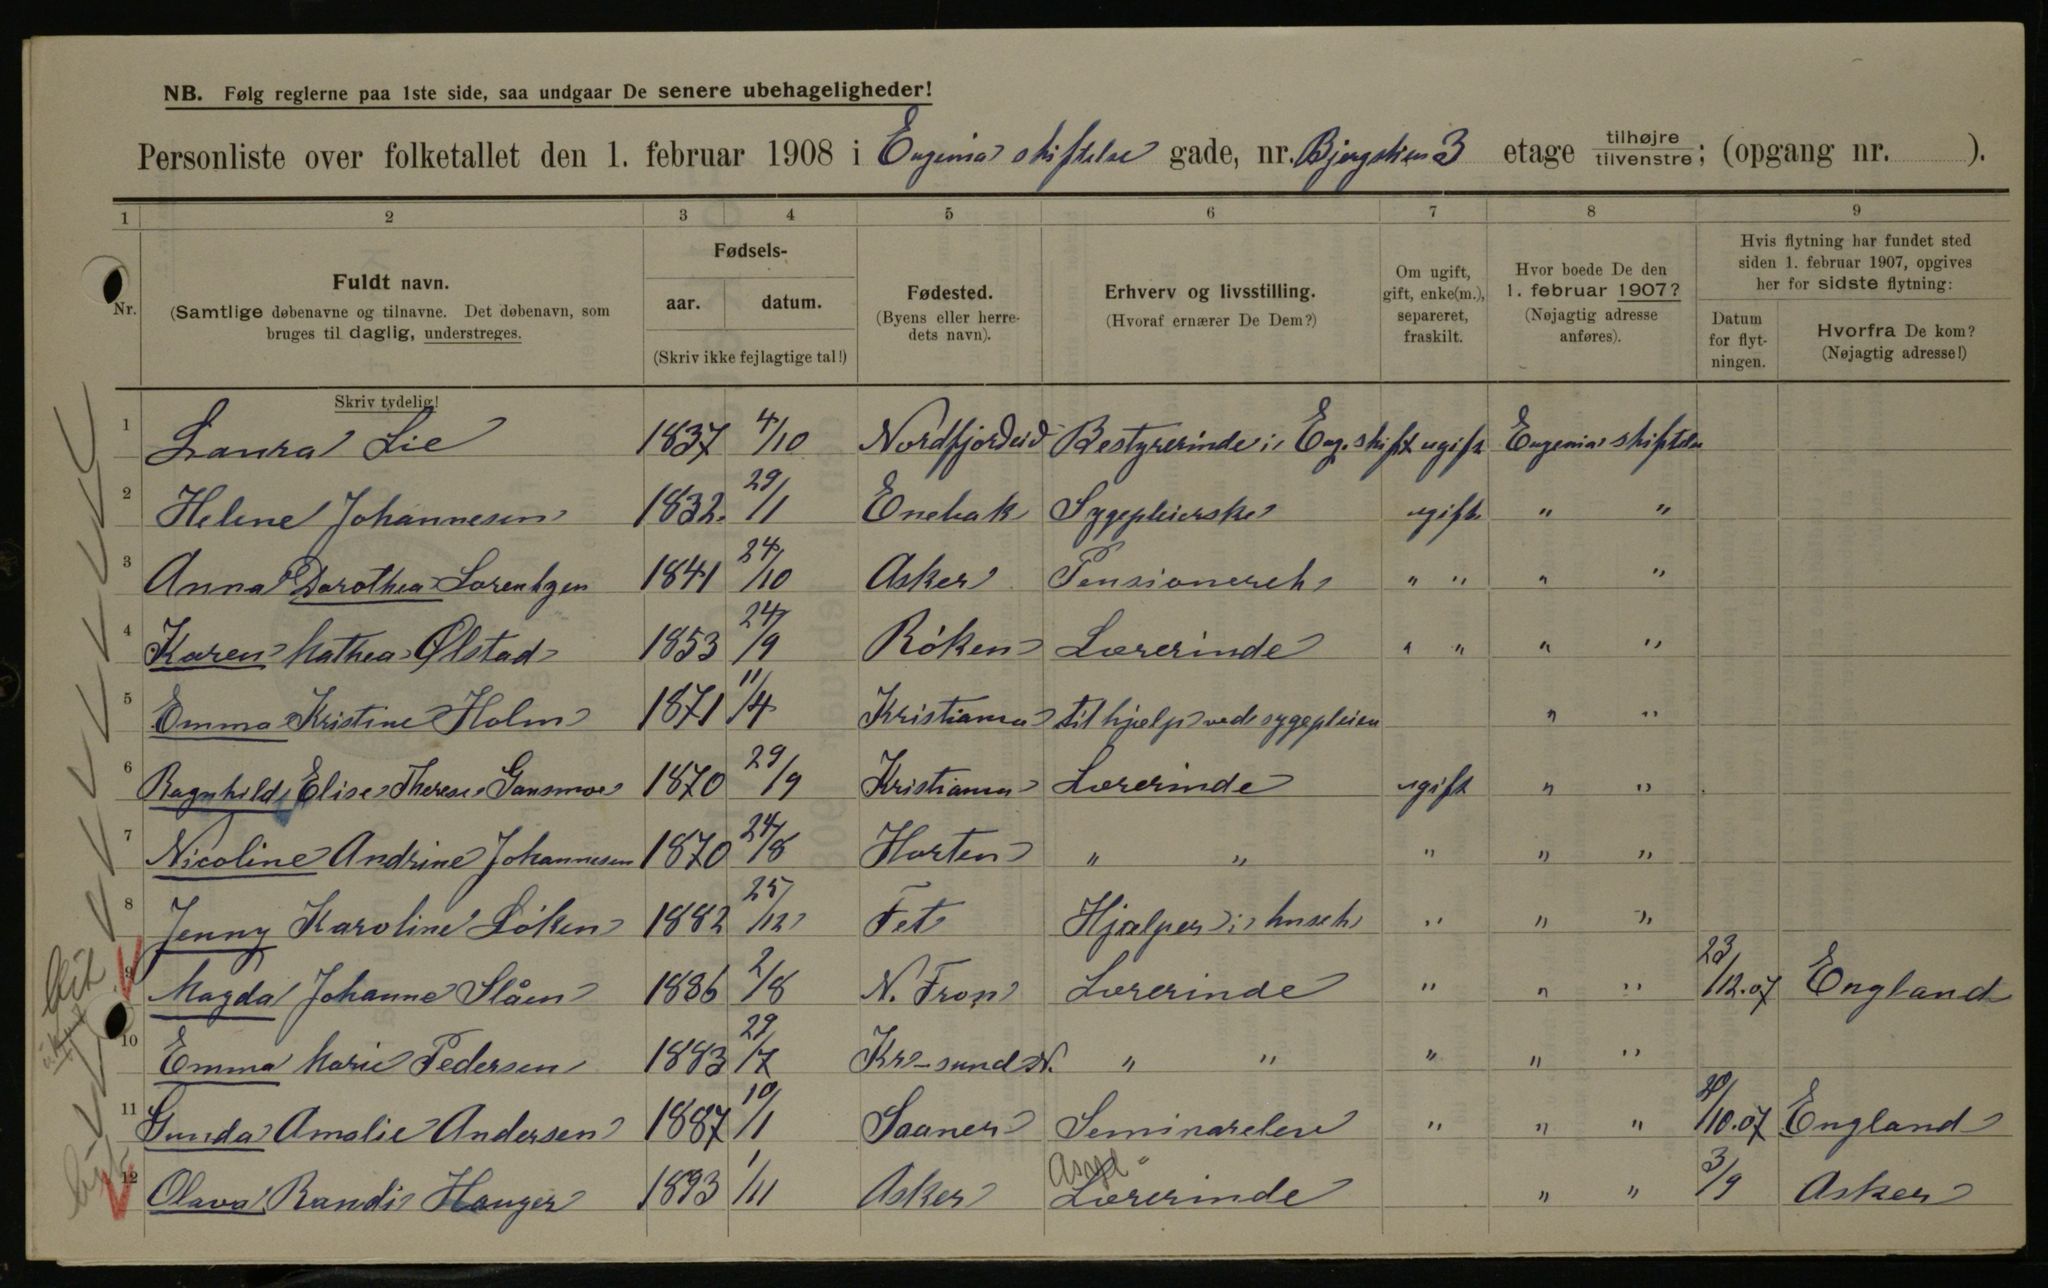 NB. Følg reglerne paa 1ste side, saa undgaar De senere ubehageligheder!
Personliste over folketallet den 1. februar 1908 i Eugenia stiftelse gade, nr. Bjergstien 3 etage tilhøjre/tilvenstre; (opgang nr. ).
1 2 3 4 5 6 7 8 9
Nr. Fuldt navn. (Samtlige døbenavne og tilnavne. Det døbenavn, som bruges til daglig, understreges.
Skriv tydelig!
Fødsels- aar. datum. (Skriv ikke fejlagtige tal!)
Fødested. (Byens eller herredets navn).
Erhverv og livsstilling. (Hvoraf ernærer De Dem?)
Om ugift, gift, enke(m.), separeret, fraskilt.
Hvor boede De den 1. februar 1907? (Nøjagtig adresse anføres).
Hvis flytning har fundet sted siden 1. februar 1907, opgives her for sidste flytning:
Datum for flytningen.
Hvorfra De kom? (Nøjagtig adresse!)
1 Laura Lie 1837 4/10 Nordfjordeid Bestyrerinde i Eug. stift ugift Eugenia stiftelse
2 Helene Johannesen 1832. 29/11 Enebak Sygepleierske ugift " "
3 Anna Dorothea Lorentzen 1841 24/10 Asker " " " "
4 Karen Mathea Ølstad 1853 24/9 Røken Lærerinde " " " "
5 Emma Kristine Holm 1871 11/4 Kristiania til hjælp ved sygepleien " "
6 Ragnhild Elise Therese Gansmoe 1870 29/9 Kristiania Lærerinde ugift " "
7 Nicoline Andrine Johannesen 1870 24/8 Horten " " " " "
8 Jenny Karoline Løken 1882 25/12 Fet Hjælper i huset " " "
9 Magda Johanne Slåen 1886 2/8 N. Fron Lærerinde " " " 23/12.07 England
10 Emma Marie Pedersen 1883 29/7 Kr-sund N. " " " " "
11 Gunda Amalie Andersen 1887 10/1 Saaner Seminarelev " " " /10.07 England
12 Olava Randi Hauger 1893 1/11 Asker Asyl Lærerinde " " 3/9 Asker